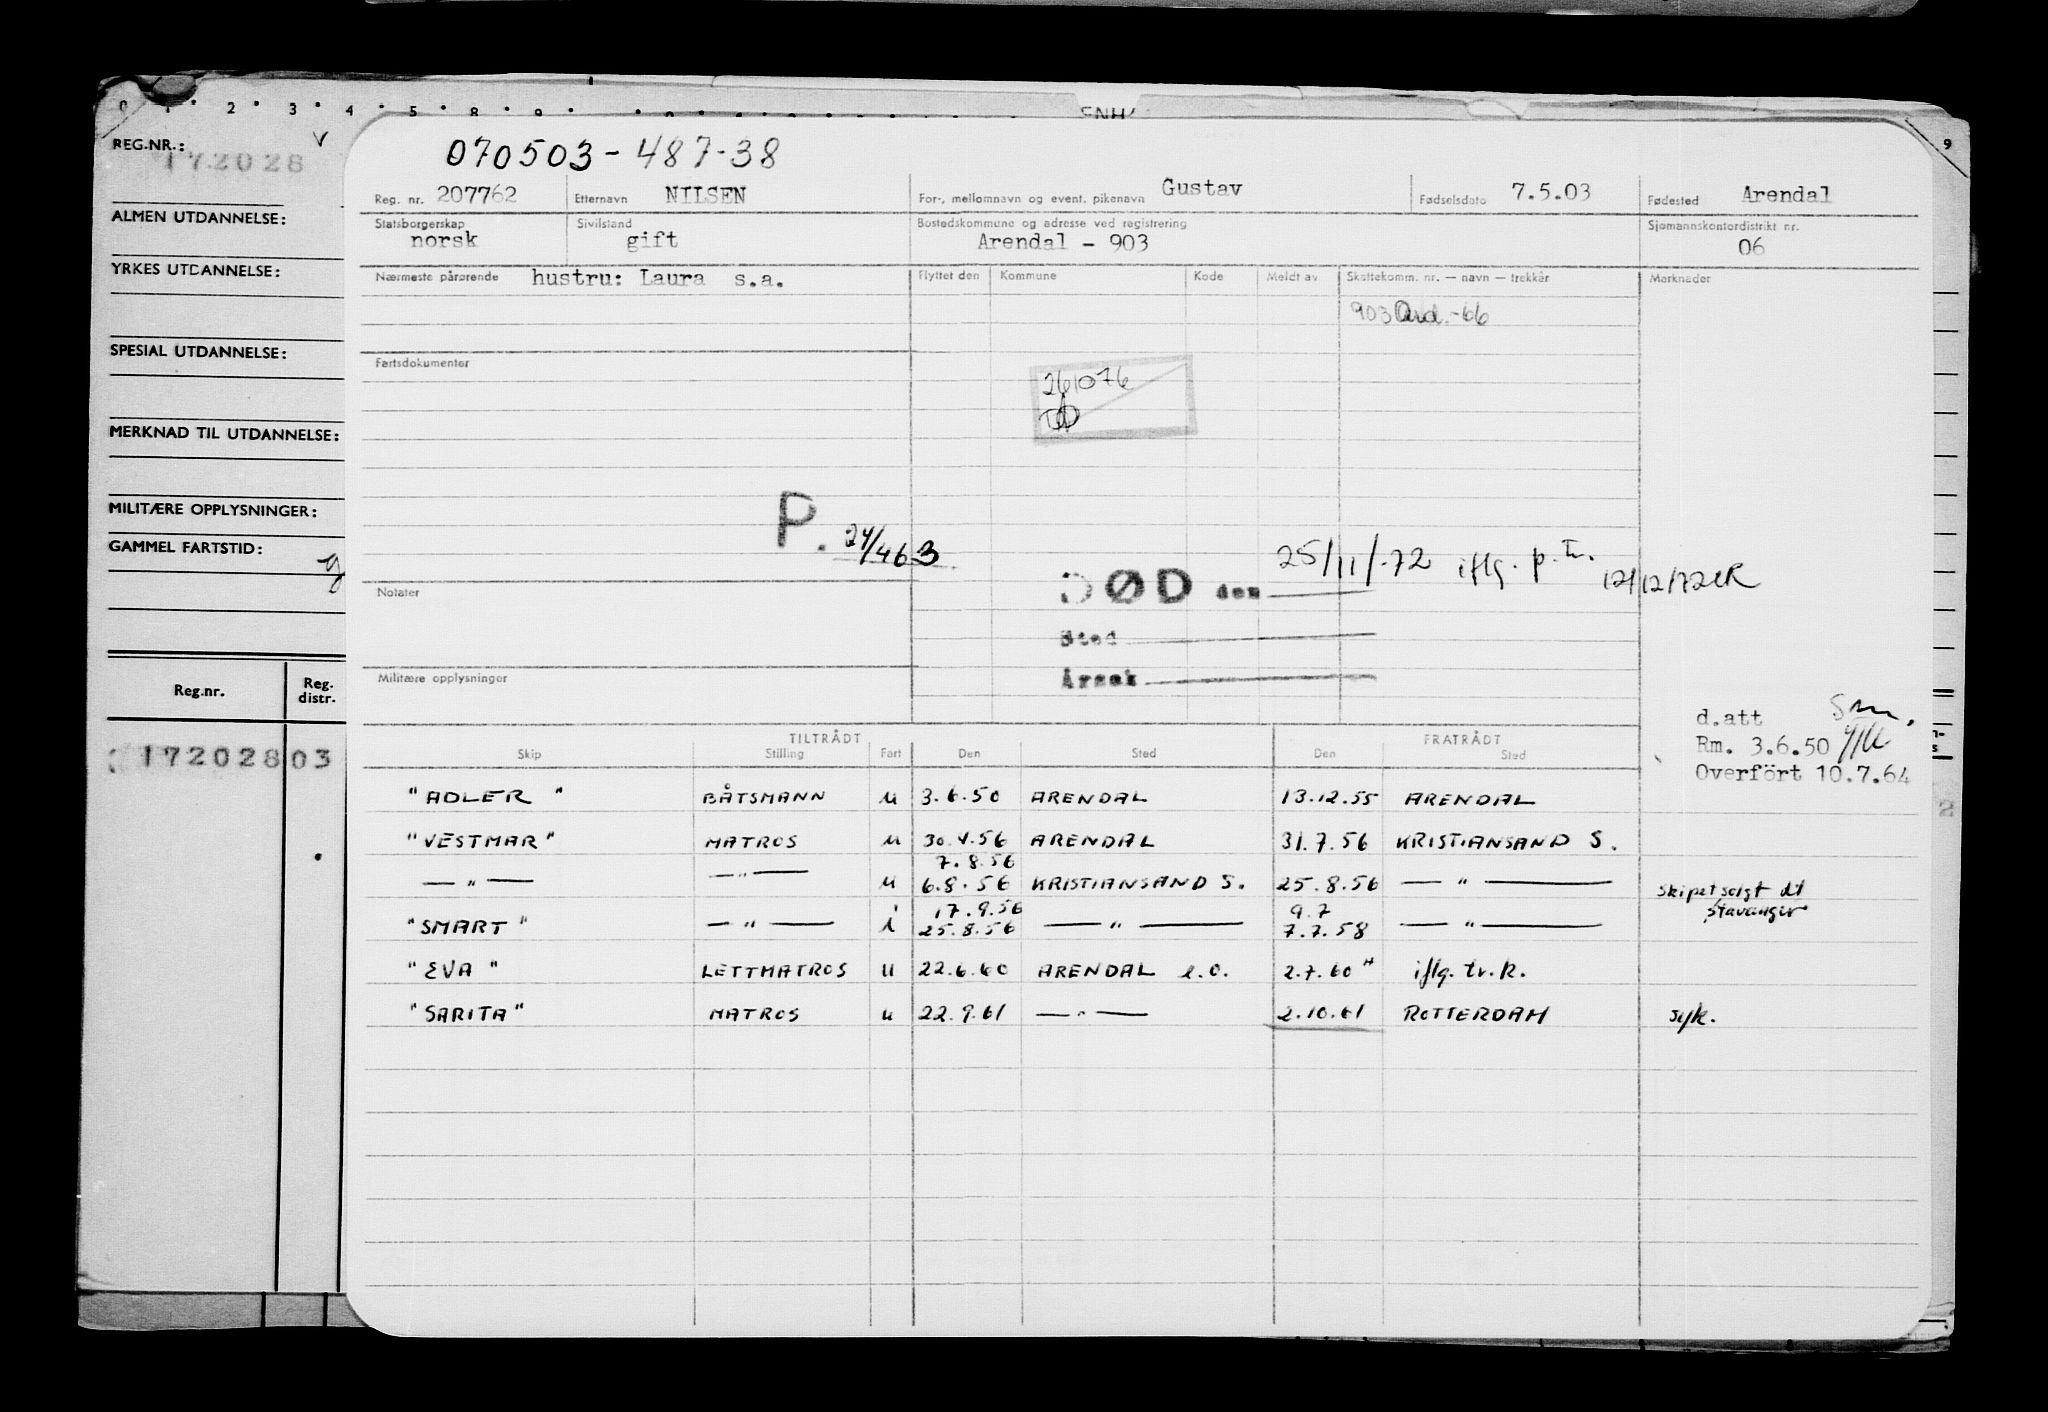 0 1 2 3 4 5 8 9
9
REG.NR.:
172028
ALMEN UTDANNELSE:
YRKES UTDANNELSE:
SPESIAL UTDANNELSE:
MERKNAD TIL UTDANNELSE:
MILITÆRE OPPLYSNINGER:
GAMMEL FARTSTID:
Reg.nr. Reg. distr.
172028 03
070503-487-38
Reg. nr. 207762 Etternavn NILSEN For-, mellomnavn og event. pikenavn Gustav Fødselsdato 7.5.03 Fødested Arendal
Statsborgerskap norsk Sivilstand gift Bostedskommune og adresse ved registrering Arendal - 903 Sjømannskontordistrikt nr. 06
Nærmeste pårørende hustru: Laura s.a. Flyttet den Kommune Kode Meldt av Skattekomm. nr. — navn — trekkår Merknader
903 -66
Fartsdokumenter
261076
P. 24/463
DØD den 25/11/-72 iflg. p.tr. 12/12/72
Notater
Sted
Årsak
Militære opplysninger
d.att
Rm. 3.6.50
Overfört 10.7.64
TILTRÅDT FRATRÅDT
Skip Stilling Fart Den Sted Den Sted
"ADLER" BÅTSMANN u 3.6.50 ARENDAL 13.12.55 ARENDAL
"VESTMAR" MATROS u 30.4.56 ARENDAL 31.7.56 KRISTIANSAND S.
7.8.56
— " — — " — u 6.8.56 KRISTIANSAND S. 25.8.56 — " — Skipet solgt til
Stavanger
17.9.56 9.7
"SMART" — " — i 25.8.56 — " — 7.7.58 — " —
"EVA" LETTMATROS u 22.6.60 ARENDAL e.o. 2.7.60 iflg. tr.k.
"SARITA" MATROS u 22.9.61 — " — 2.10.61 ROTTERDAM syk.